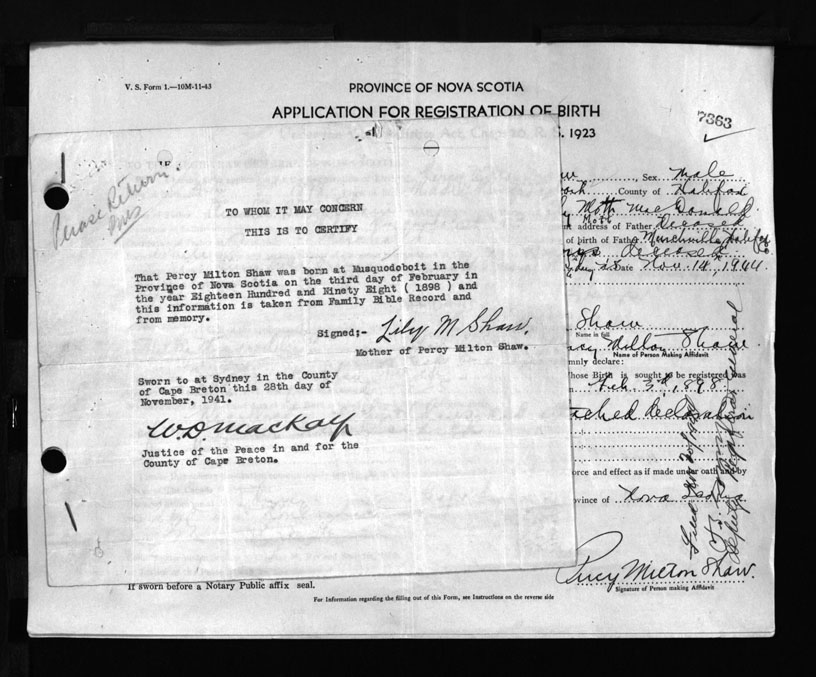 V. S. Form 1.—10M-11-43
PROVINCE OF NOVA SCOTIA
APPLICATION FOR REGISTRATION OF BIRTH
1923
7363
Please Return.
TO WHOM IT MAY CONCERN
THIS IS TO CERTIFY
That Percy Milton Shaw was born at Musquodoboit in the
Province of Nova Scotia on the third day of February in
the year Eighteen Hundred and Ninety Eight ( 1898 ) and
this information is taken from Family Bible Record and
from memory.
Signed;- Lily M Shaw.
Mother of Percy Milton Shaw.
Sworn to at Sydney in the County
of Cape Breton this 28th day of
November, 1941.
W.D. Mackay
Justice of the Peace in and for the
County of Cape Breton.
Sex Male
County of Halifax
Mott McDonald
Mott
address of Father Deceased
of birth of Father
deceased
Date Nov. 14, 1944
Shaw
Name in full
Milton Shaw
Name of Person Making Affidavit
mnly declare:
hose Birth is sought to be registered was
Feb. 3rd, 1898
tached declaration
orce and effect as if made under oath and by
vince of Nova Scotia
Percy Milton Shaw.
Signature of Person making Affidavit
Deputy Registrar General
If sworn before a Notary Public affix seal.
For Information regarding the filling out of this Form, see Instructions on the reverse side